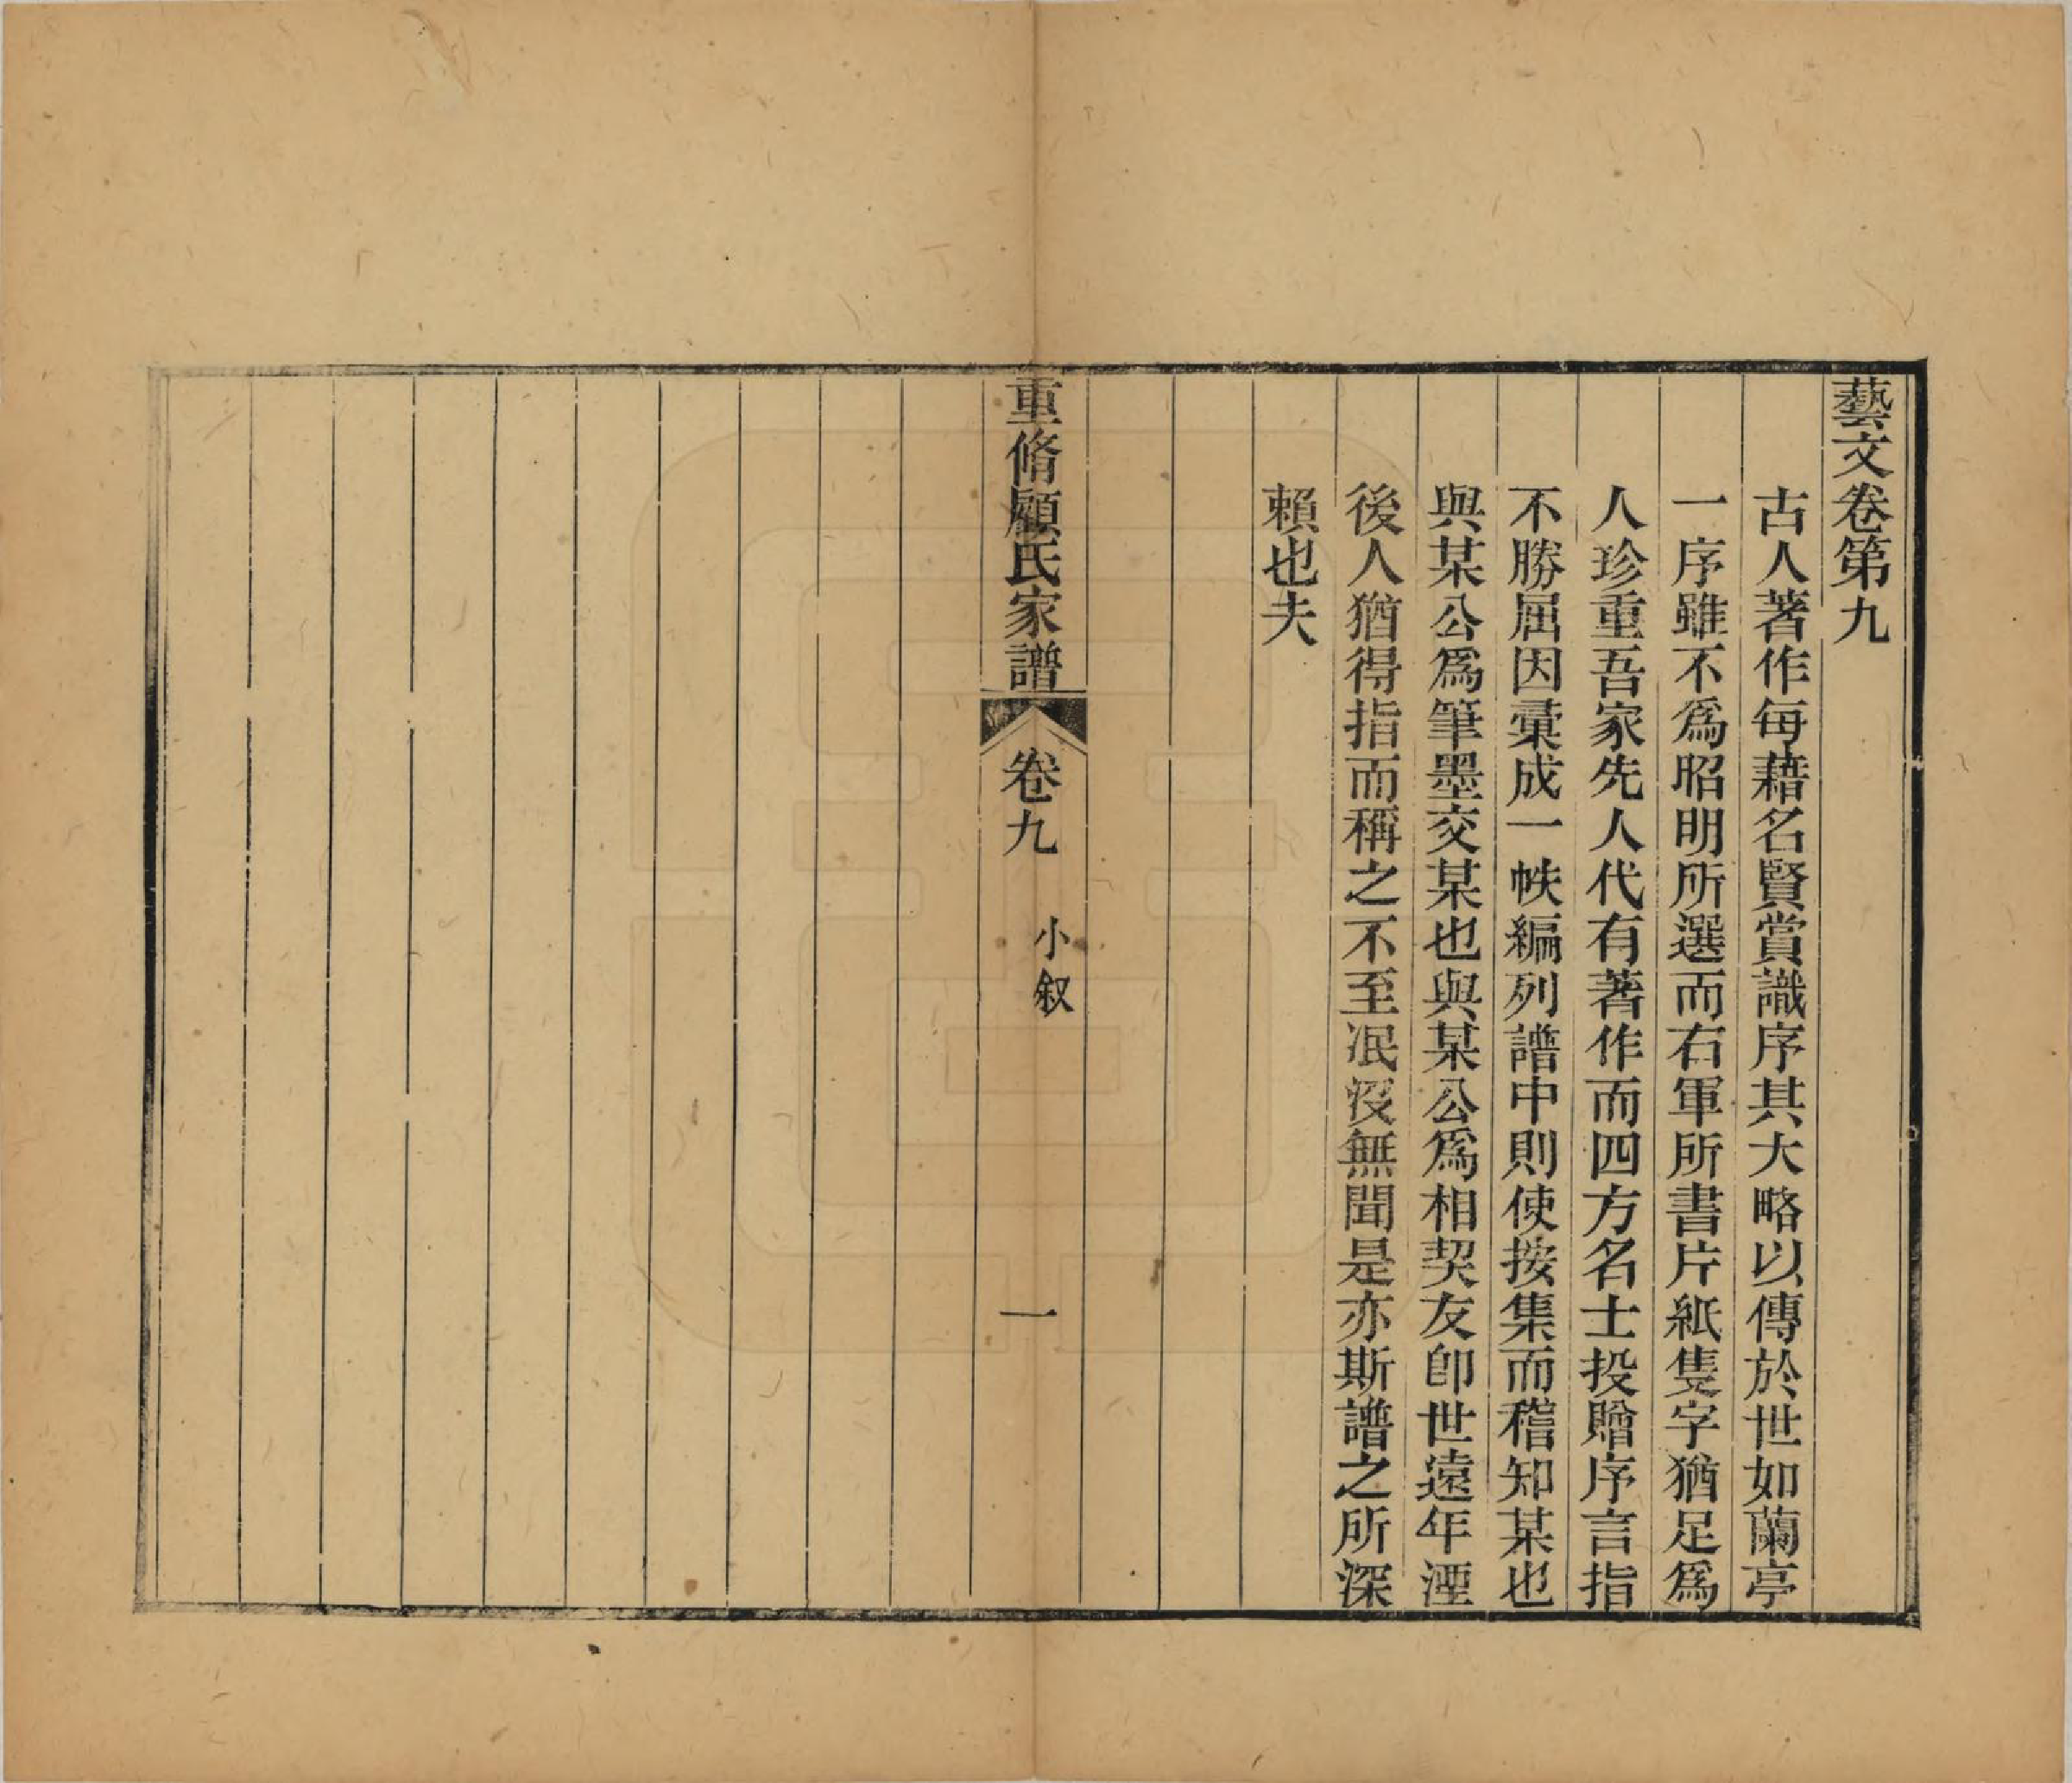 藝文卷第九
古人著作每藉名賢賞識序其大略以傳於世如蘭亭
一序雖不爲昭明所選而右軍所書片紙隻字猶足爲
人珍重吾家先人代有著作而四方名士投贈序言指
不勝屈因彙成一帙編列譜中則使按集而稽知某也
與某公爲筆墨交某也與某公爲相契友卽世遠年湮
後人猶得指而稱之不至泯沒無聞是亦斯譜之所深
賴也夫
重脩顧氏家譜
卷九
小叙
一